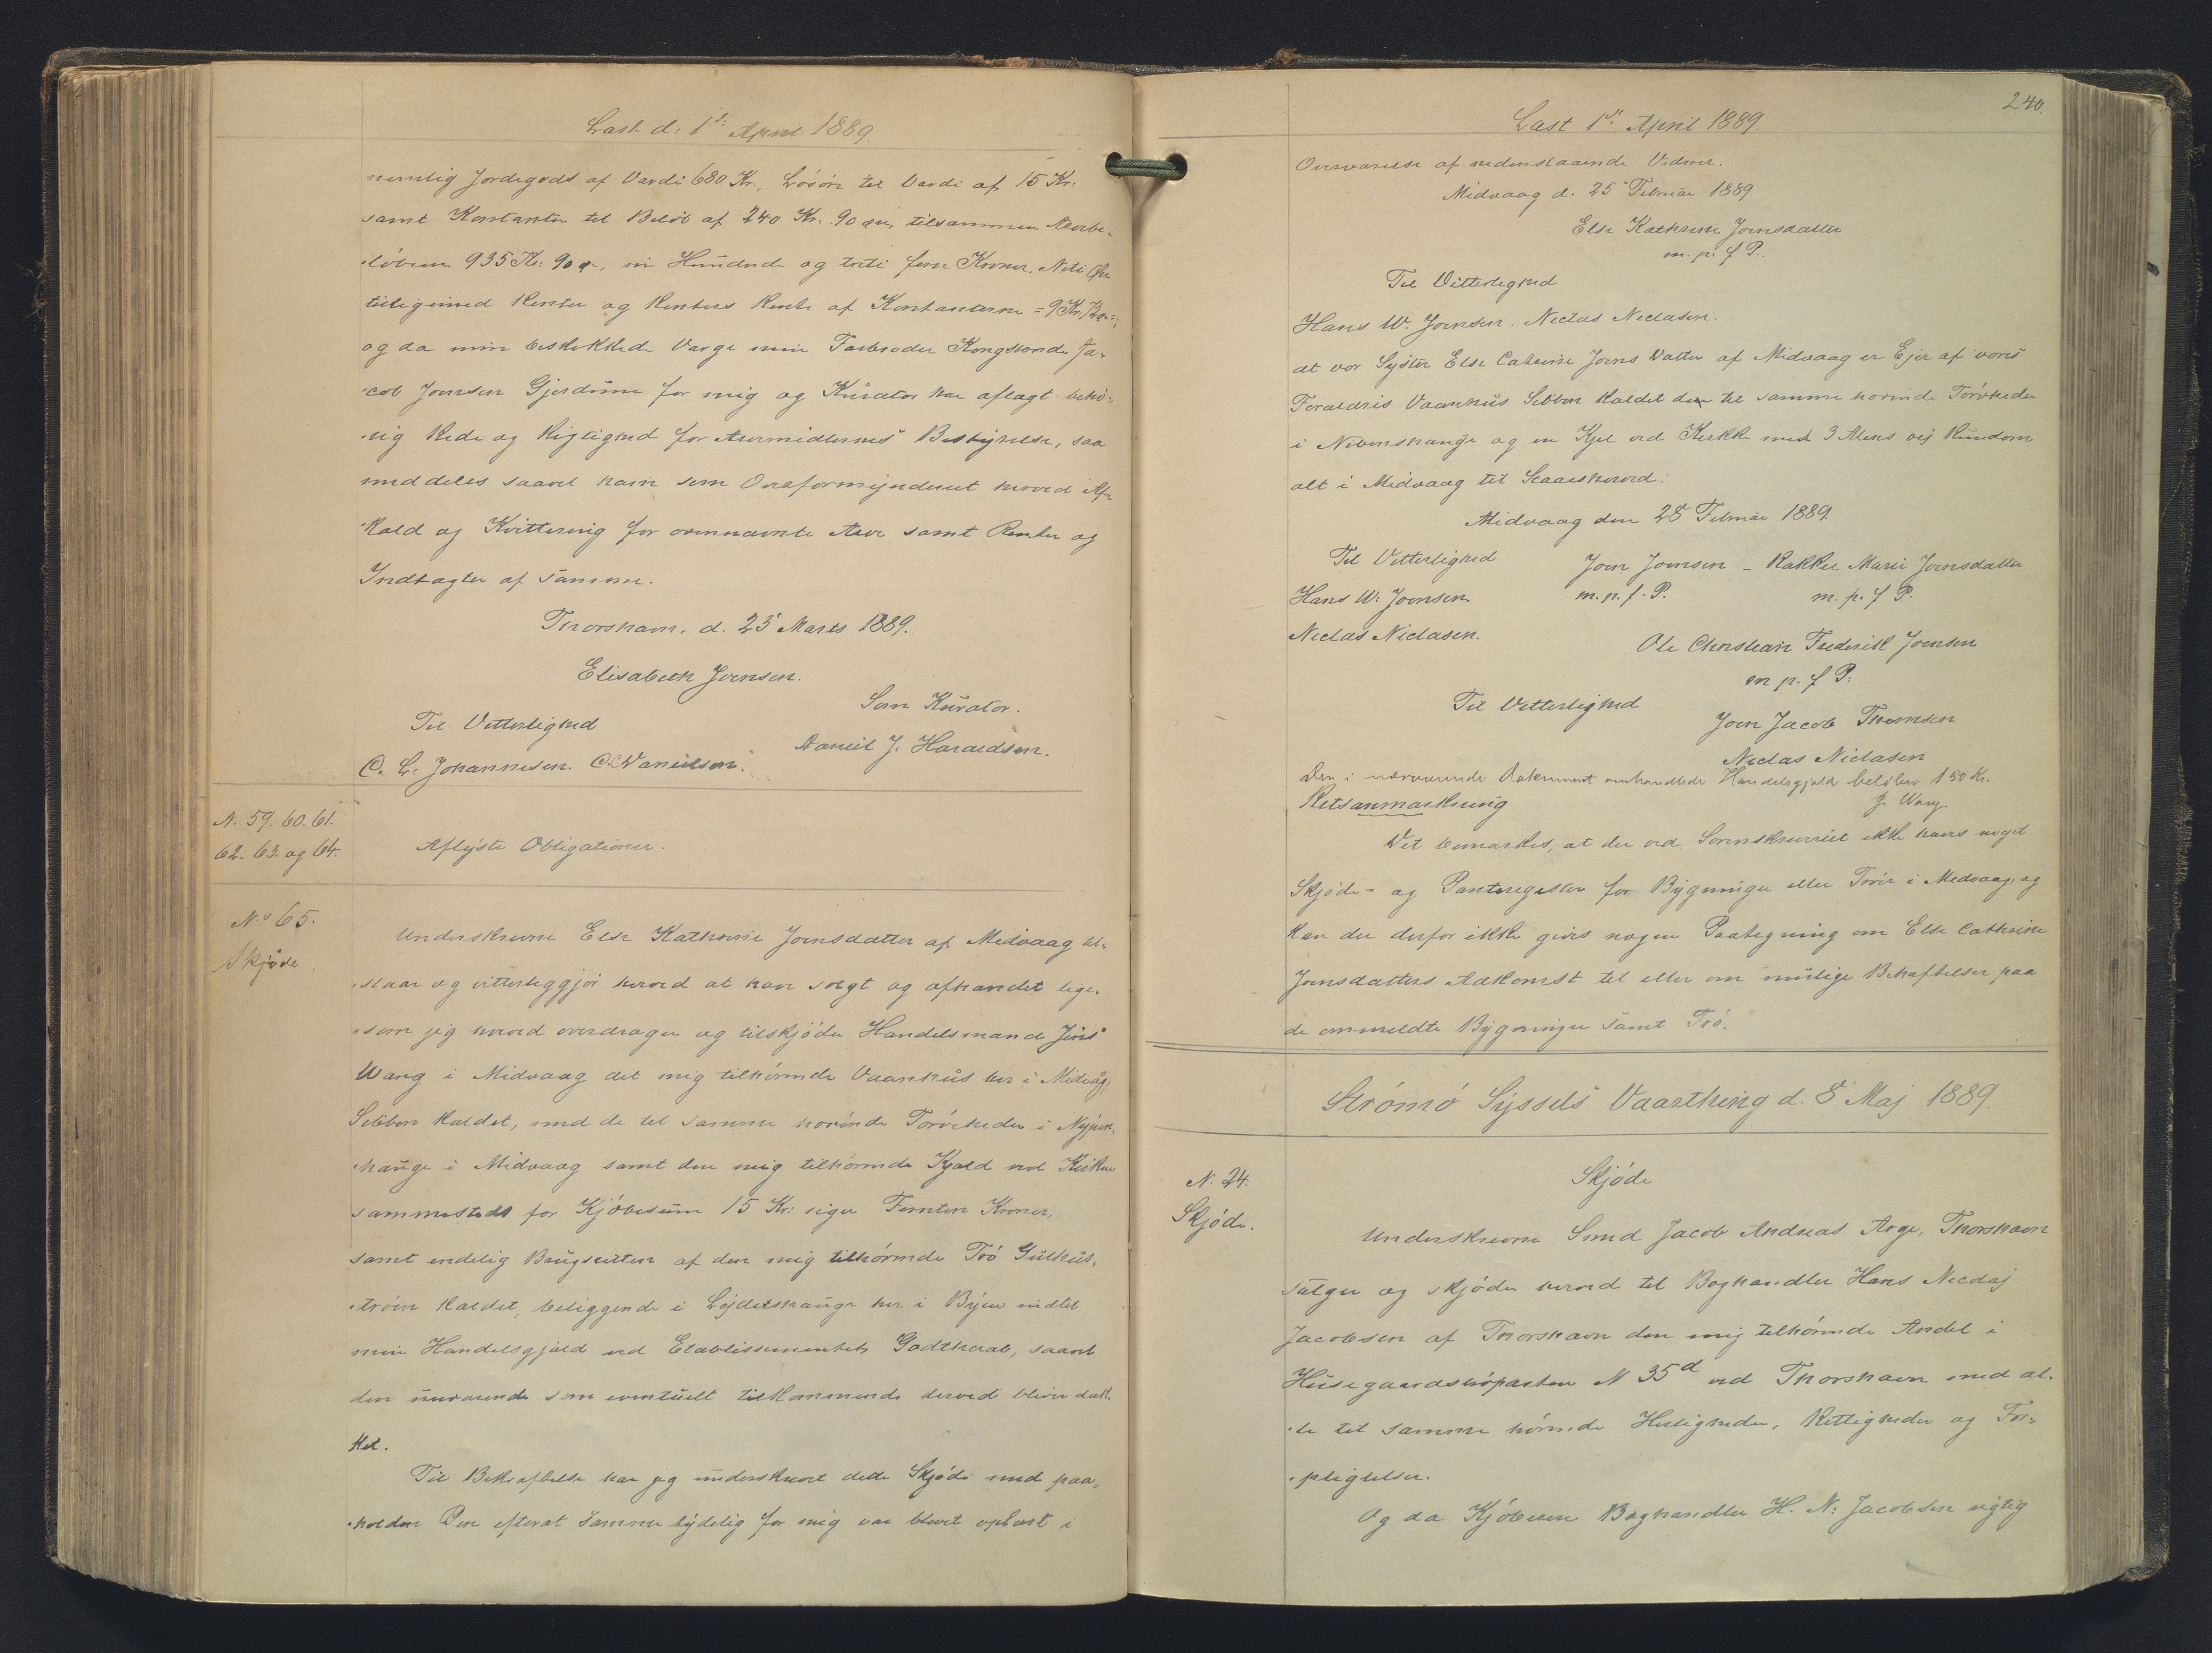 Læst d. 1ste April 1889.
nemlig Jordegods af Værdi 680 Kr., Lösöre til Værdi af 15 Kr.
samt Kontanter til Beløb af 240 Kr. 90 øre, tilsammen Arvebe-
-löbene 935 Kr. 90 ø., ni Hundrede og treti fem Kroner, Niti Øre
tilligemed Renter og Renters Rente af Kontanterne
og da min beskikkede Værge min Farbroder Kongsbonde Ja-
-cob Joensen Gjerdum for mig og Kurator har aflagt behö-
-rig Rede og Rigtighed for Arvemidlernes Bestyrelse, saa
meddeles saavel ham som Overformynderiet herved Af-
-kald og Kvittering for ovennævnte Arv samt Renter og
Indtægter af samme.
Thorshavn, d. 23 Marts 1889.
Elisabeth Joensen.
Som Kurator.
Til Vitterlighed
Daniel J. Haraldsen.
C. L. Johannesen. C. Danielsen.
N. 59. 60. 61.
62. 63. og 64.
Aflyste Obligationer.
No 65.
Skjöde
Underskrevne Else Kathrine Joensdatter af Midvaag til-
-staar og vitterliggjör herved at have solgt og afhændet lige-
-som jeg herved overdrager og tilskjöder Handelsmand Jens
Wang i Midvaag det mig tilhörende Vaanhus her i Midvåg,
Sebben kaldet, med de til samme hörende Törvheder i
-hauge i Midvaag samt den mig tilhörende Kjæld ved Kirken
sammesteds for Kjöbesum 15 Kr. siger Femten Kroner,
samt endelig Brugsretten af den mig tilhörende Trö Gulhus-
-tröen kaldet, beliggende i Lejdetshauge her i Byen indtil
min Handelsgjæld ved Etablissementet Godthaab, saavel
den nuværende som eventuelt tilkommende derved bliver dæk-
ket.
Til Bekræftelse har jeg underskrevet dette Skjöde med paa-
-holden Pen efterat samme tydelig for mig var blevet oplæst i
240.
Læst 1ste April 1889.
Overværelse af nedenstaaende Vidner.
Midvaag d. 25 Februar 1889.
Else Kathrine Joensdatter
m. p. f P.
Til Vitterlighed
Hans W. Joensen. Niclas Niclasen.
at vor Syster Else Catrine Joens Datter af Midvaag er Ejer af vores
Foraldris Vaanhus Sebben kaldet den til samme horende Törvheder
i Nibenshauge og en Kjel ved Kirkke med 3 Alens vej Rundom
alt i Midvaag til Staaes herved:
Midvaag den 25 Februar 1889.
Til Vitterlighed Joen Joensen - Rakkel Marie Joensdatter
Hans W. Joensen m. p. f. P. m. p. f P.
Niclas Niclasen.
Ole Christian Frederik Joensen
m p. f P.
Til Vitterlighed
Joen Jacob Thomsen
Niclas Niclasen
Den i nærværende Dokument omhandlede Handelsgjæld beløber 150 Kr.
Retsanmærkning J. Wang
Det bemærkes, at der ved Sorenskriveriet ikke haves noget
Skjöde- og Panteregister for Bygninger eller Tröer i Midvaag, og
kan der derfor ikke gives nogen Paategning om Else Cathrine
Joensdatters Adkomst til eller om mulige Behæftelser paa
de ommeldte Bygninger samt Trö.
Strömö Syssels Vaarthing d. 8 Maj 1889.
N. 24.
Skjöde.
Skjöde
Underskrevne Smed Jacob Andreas Arge, Thorshavn
sælger og skjöder herved til Boghandler Hans Nicolaj
Jacobsen af Thorshavn den mig tilhörende Andel i
Husegaardströparten N 35d ved Thorshavn med al-
-le til samme hörende Herligheder, Rettigheder og For-
-pligtelser.
Og da Kjöberen Boghandler H. N. Jacobsen rigtig